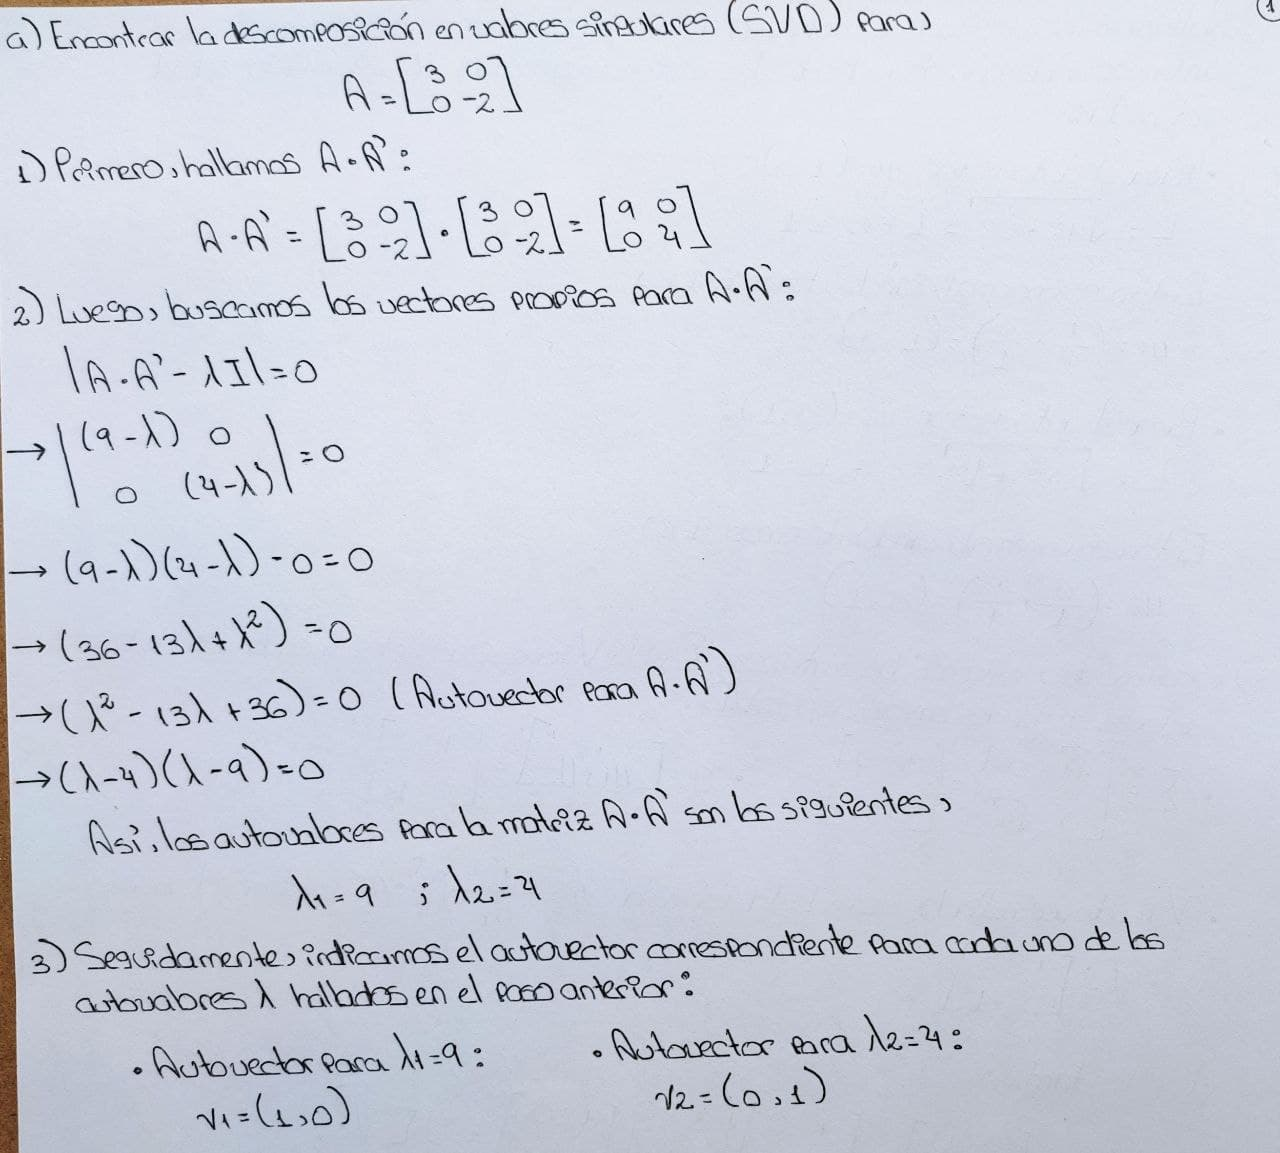 a) Encontrar la descomposición en valores singulares (SVD) para,
A = [3 0
0 -2]
1) Primero, hallamos A·A':
A·A' = [3 0
0 -2] · [3 0
0 -2] = [9 0
0 4]
2) Luego, buscamos los vectores propios para A·A':
|A·A' - λI| = 0
→ |(9-λ) 0
0 (4-λ)| = 0
→ (9-λ)(4-λ) - 0 = 0
→ (36 - 13λ + λ²) = 0
→ (λ² - 13λ + 36) = 0 (Autovector para A·A')
→ (λ-4)(λ-9) = 0
Así, los autovalores para la matriz A·A' son los siguientes,
λ1 = 9 ; λ2 = 4
3) Seguidamente, indicamos el autovector correspondiente para cada uno de los
autovalores λ hallados en el paso anterior:
• Autovector para λ1 = 9: • Autovector para λ2 = 4:
v1 = (1,0) v2 = (0,1)